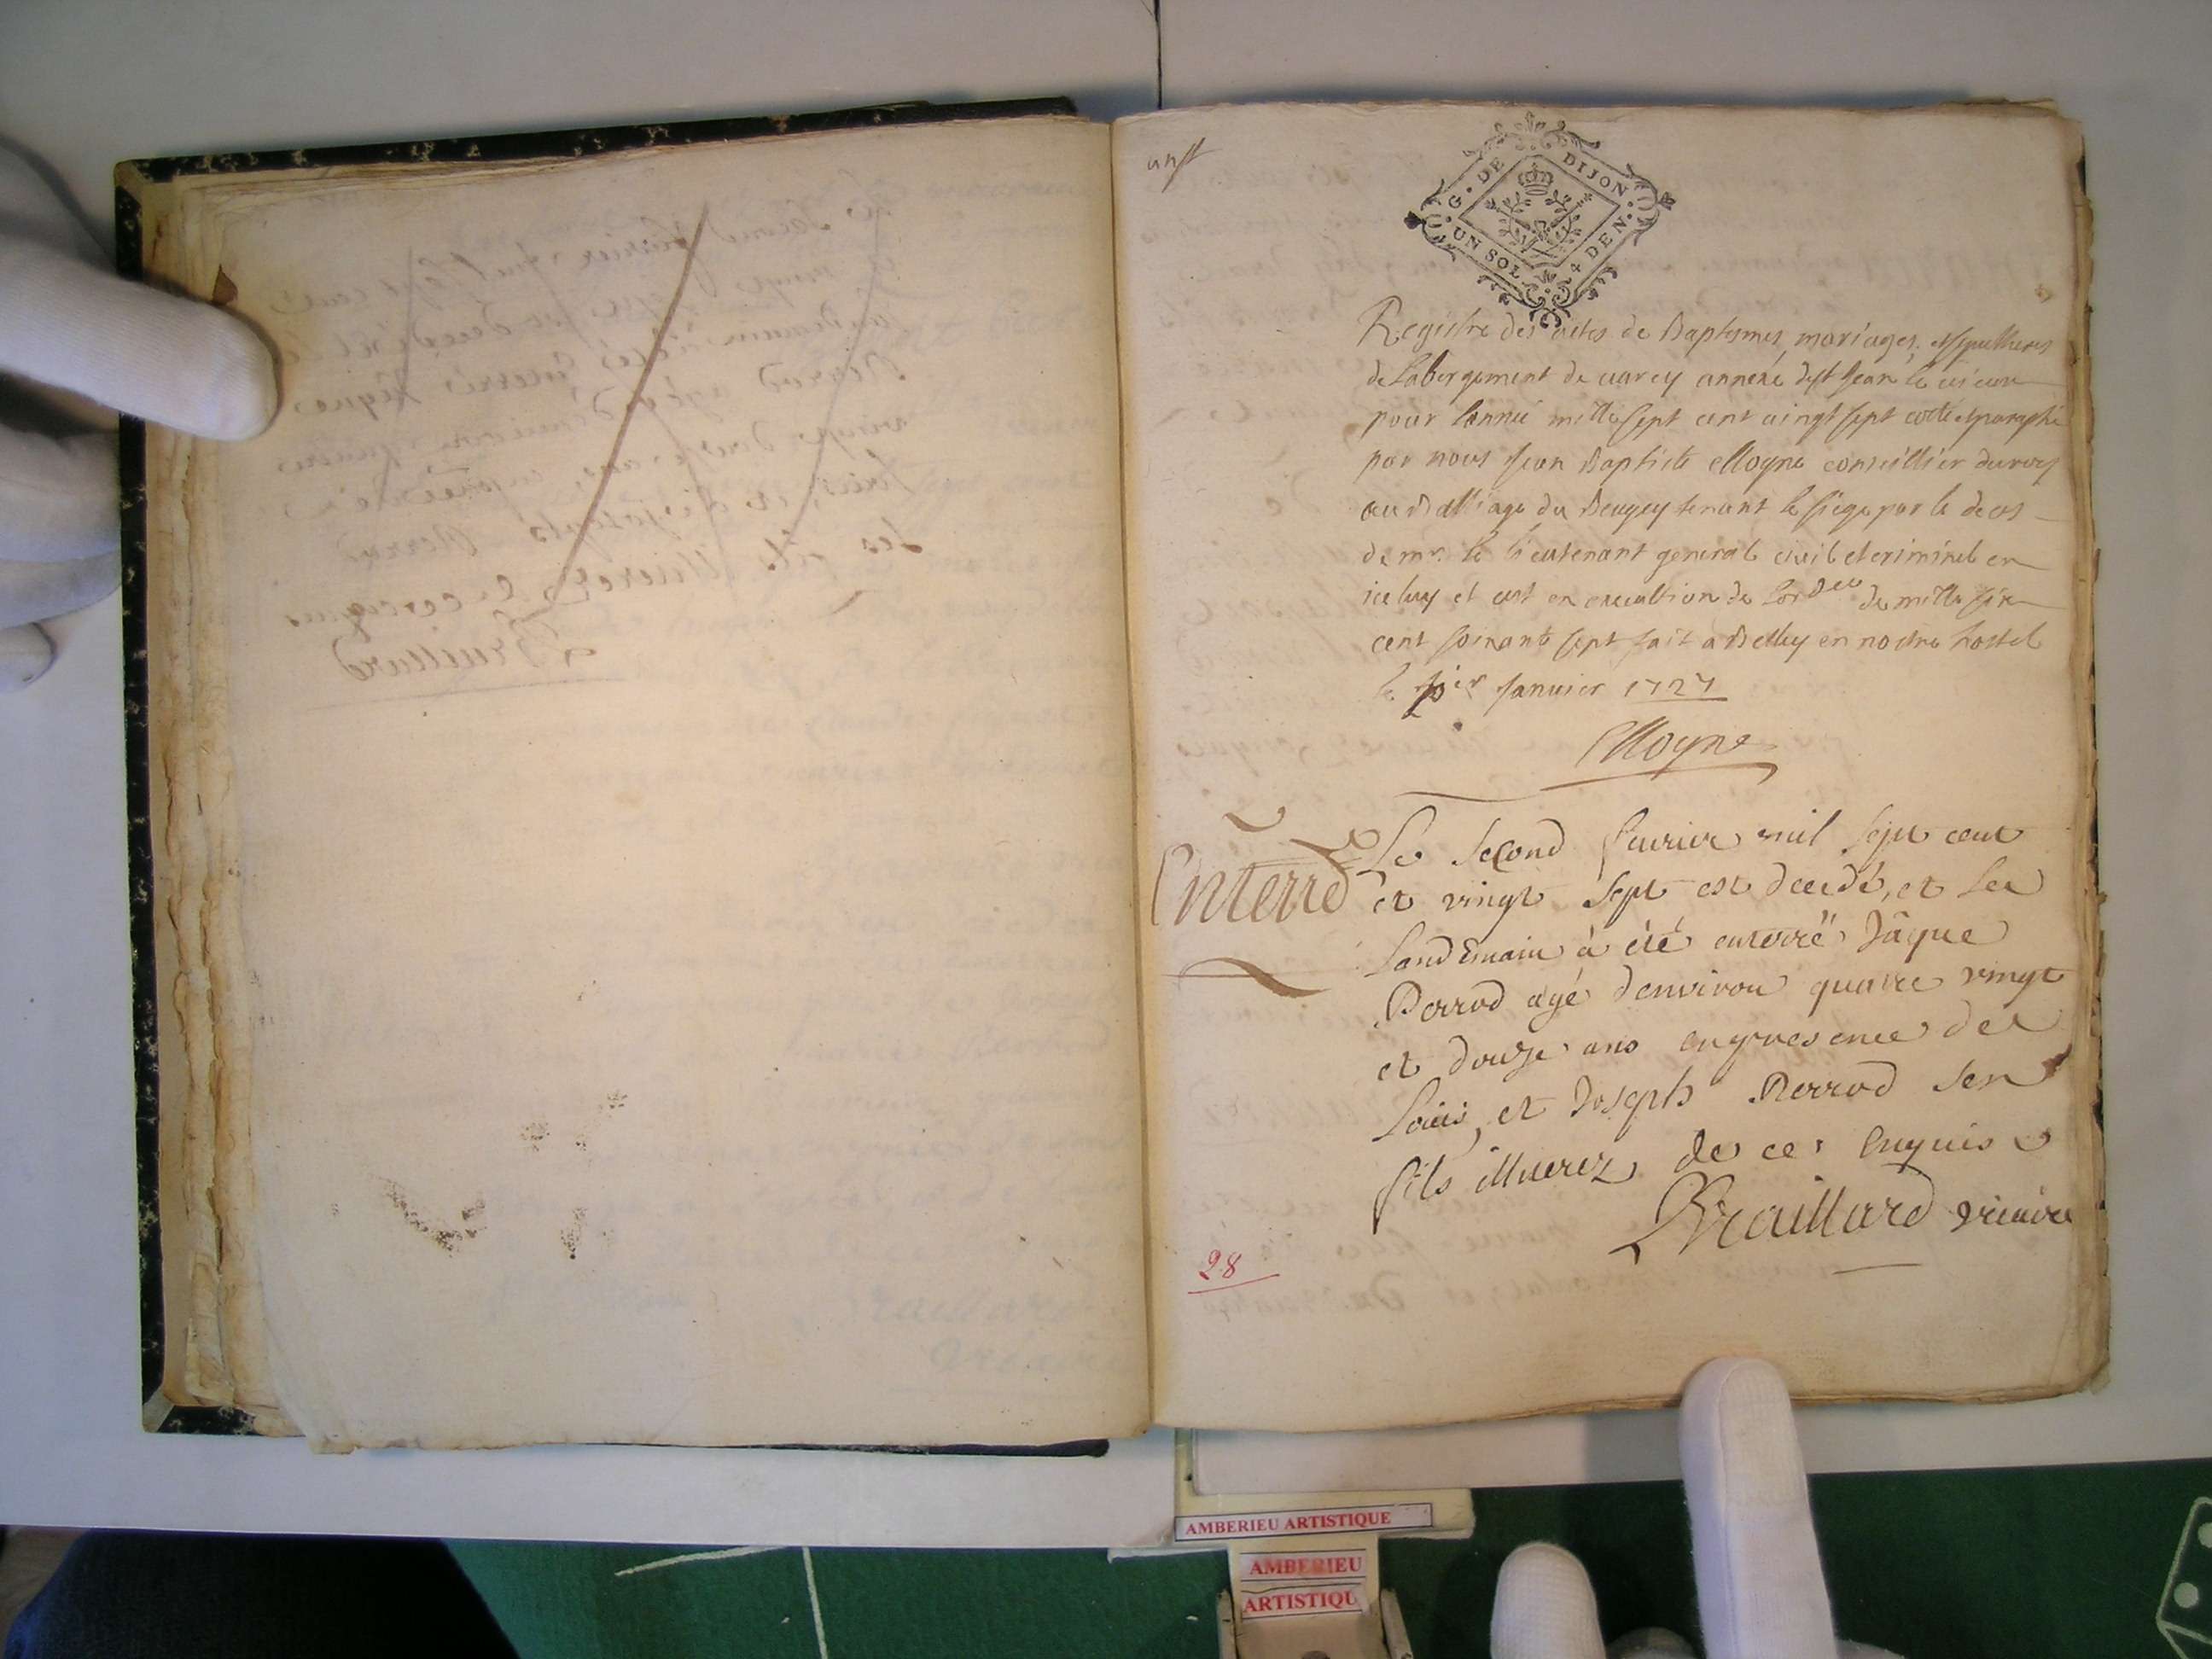 G. DE DIJON
UN SOL 4 DEN.
Registre des actes de Baptesmes, mariages, et sepultures
de Labergement de varey annexe de st Jean le vieux
pour lannée mille sept cent vingt sept cotté et paraphé
par nous Jean Baptiste Moyne conseillier du roy
au Balliage du Beugey tenant le siege par le deces
de mr. le lieutenant general civil et criminel en
iceluy et cest en execution de Lordce de mille six
cent soixante sept fait a Belley en nostre hostel
le pier Janvier 1727
Moyne
Enterré
Le second fevrier mil sept cent
et vingt sept est decedé, et le
landemain à été enterré Jâque
Perrod agé denviron quatre vingt
et douze ans en presence de
Loüis, et Joseph Perrod ses
fils illiterez de ce enquis
Braillard vicaire
28
AMBERIEU ARTISTIQUE
AMBERIEU
ARTISTIQU